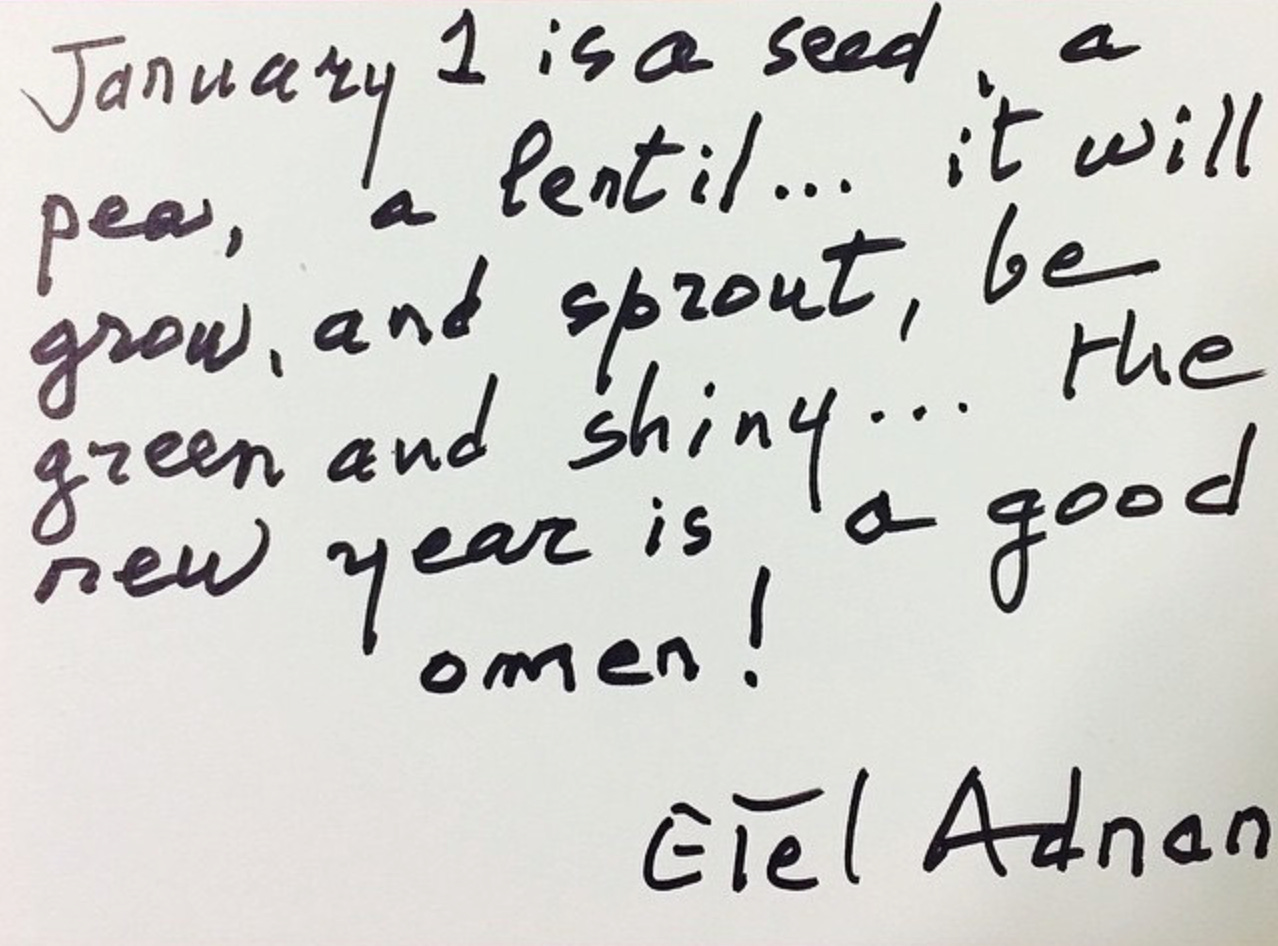 January 1 is a seed, a
pea, a lentil... it will
grow, and sprout, be
green and shiny... the
new year is a good
omen!
Etel Adnan